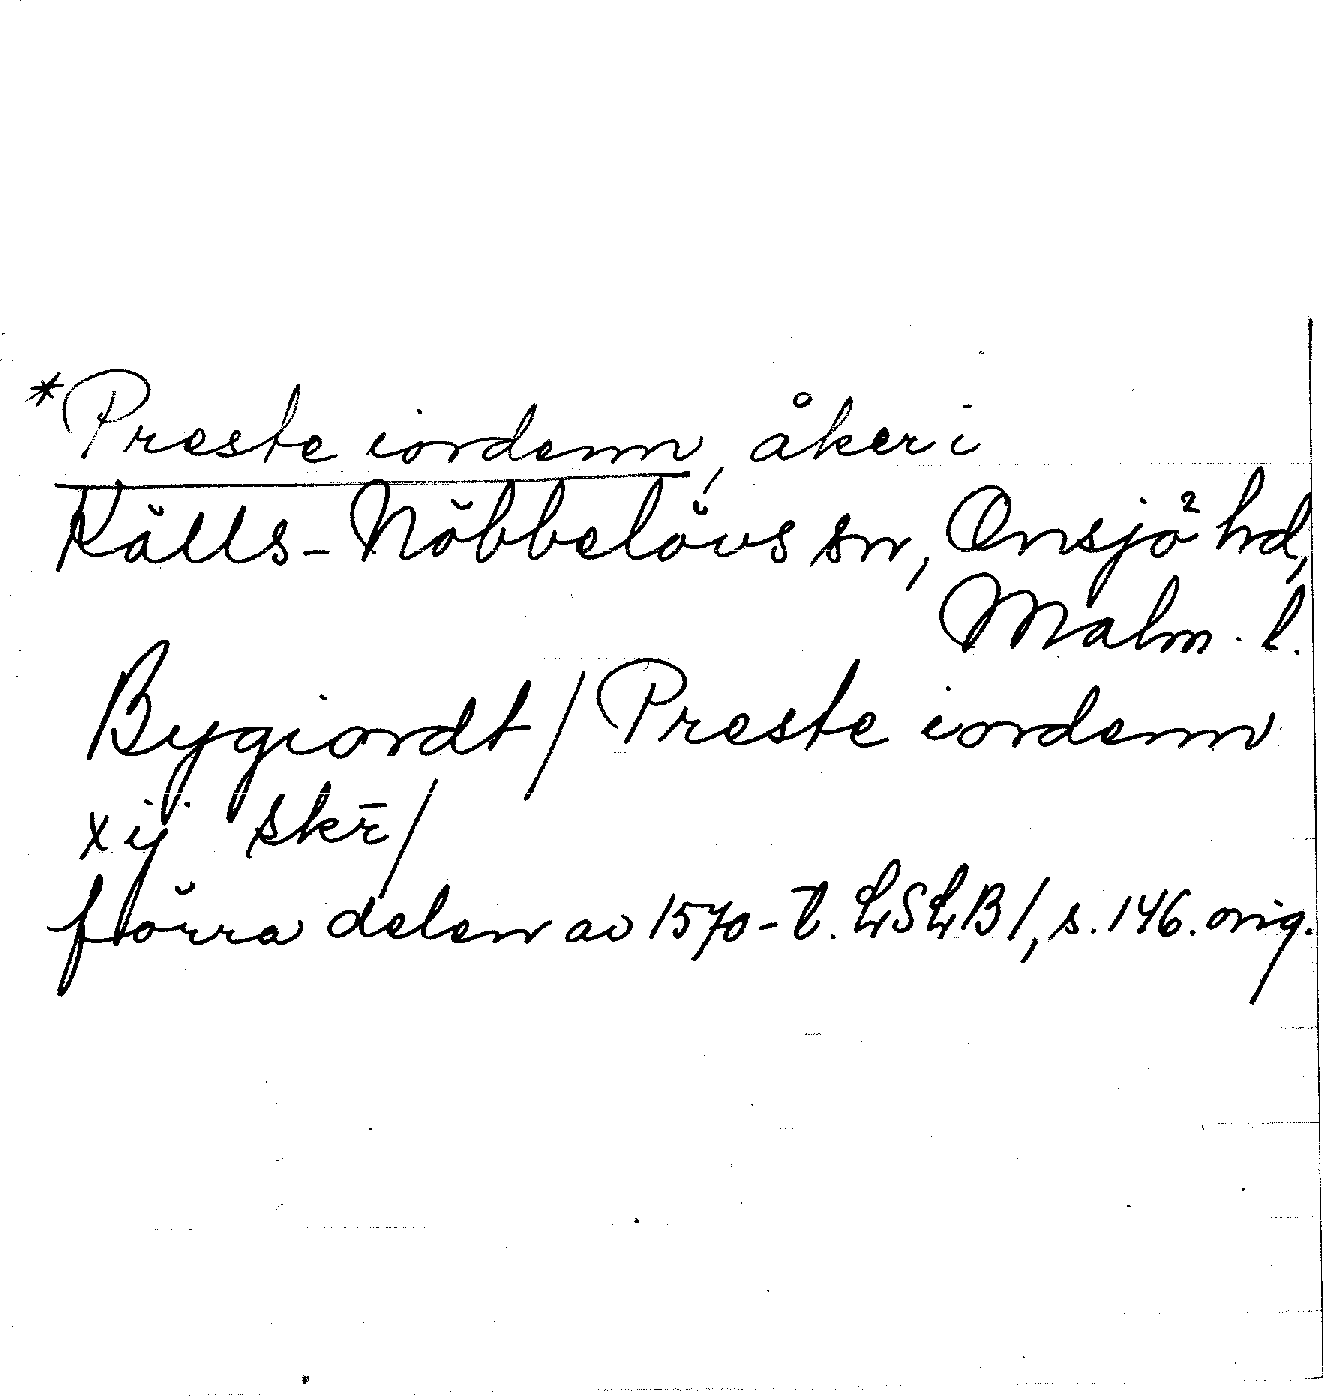 *Preste iordenn, åker i
Källs-Nöbbelövs sn, Onsjö hd,
Malm. l.
Bygiordt / Preste iordenn
xij skr̄ /
förra delen av 1570-t. LSLB 1, s. 146. orig.